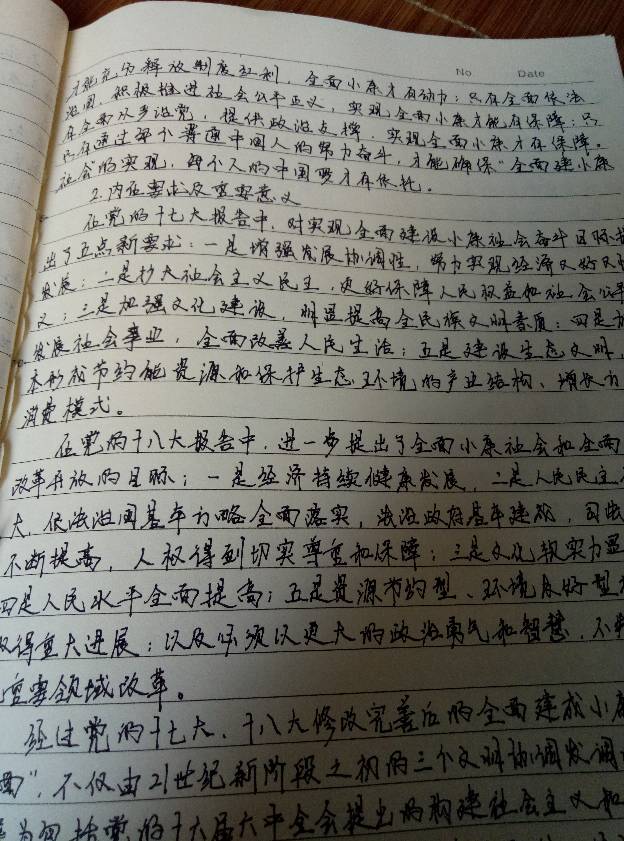 No Date
才能充分释放制度红利，全面小康才有动力；只有全面依法
治国，积极推进社会公平正义，实现全面小康才能有保障；只
有全面从严治党，提供政治支撑，实现全面小康才有保障。
只有通过每个普通中国人的努力奋斗，才能确保“全面建小康
社会的实现，每个人的中国梦才有依托。
2.内在要求及重要意义
在党的十七大报告中，对实现全面建设小康社会奋斗目标提
出了五点新要求：一是增强发展协调性，努力实现经济又好又
发展；二是扩大社会主义民主，更好保障人民权益和社会公平
义；三是加强文化建设，明显提高全民族文明素质；四是加
发展社会事业，全面改善人民生活；五是建设生态文明，
本形成节约能资源和保护生态环境的产业结构、增长方
消费模式。
在党的十八大报告中，进一步提出了全面小康社会和全面
改革开放的目标；一是经济持续健康发展，二是人民民主
大，依法治国基本方略全面落实，法治政府基本建成，司法
不断提高，人权得到切实尊重和保障；三是文化软实力显
四是人民水平全面提高；五是资源节约型、环境友好型
取得重大进展；以及必须以更大的政治勇气和智慧，不
重要领域改革。
经过党的十七大、十八大修改完善后的全面建成小康
面”，不仅由21世纪新阶段之初的三个文明协调发调
为包括党的十六届六中全会提出的构建社会主义和